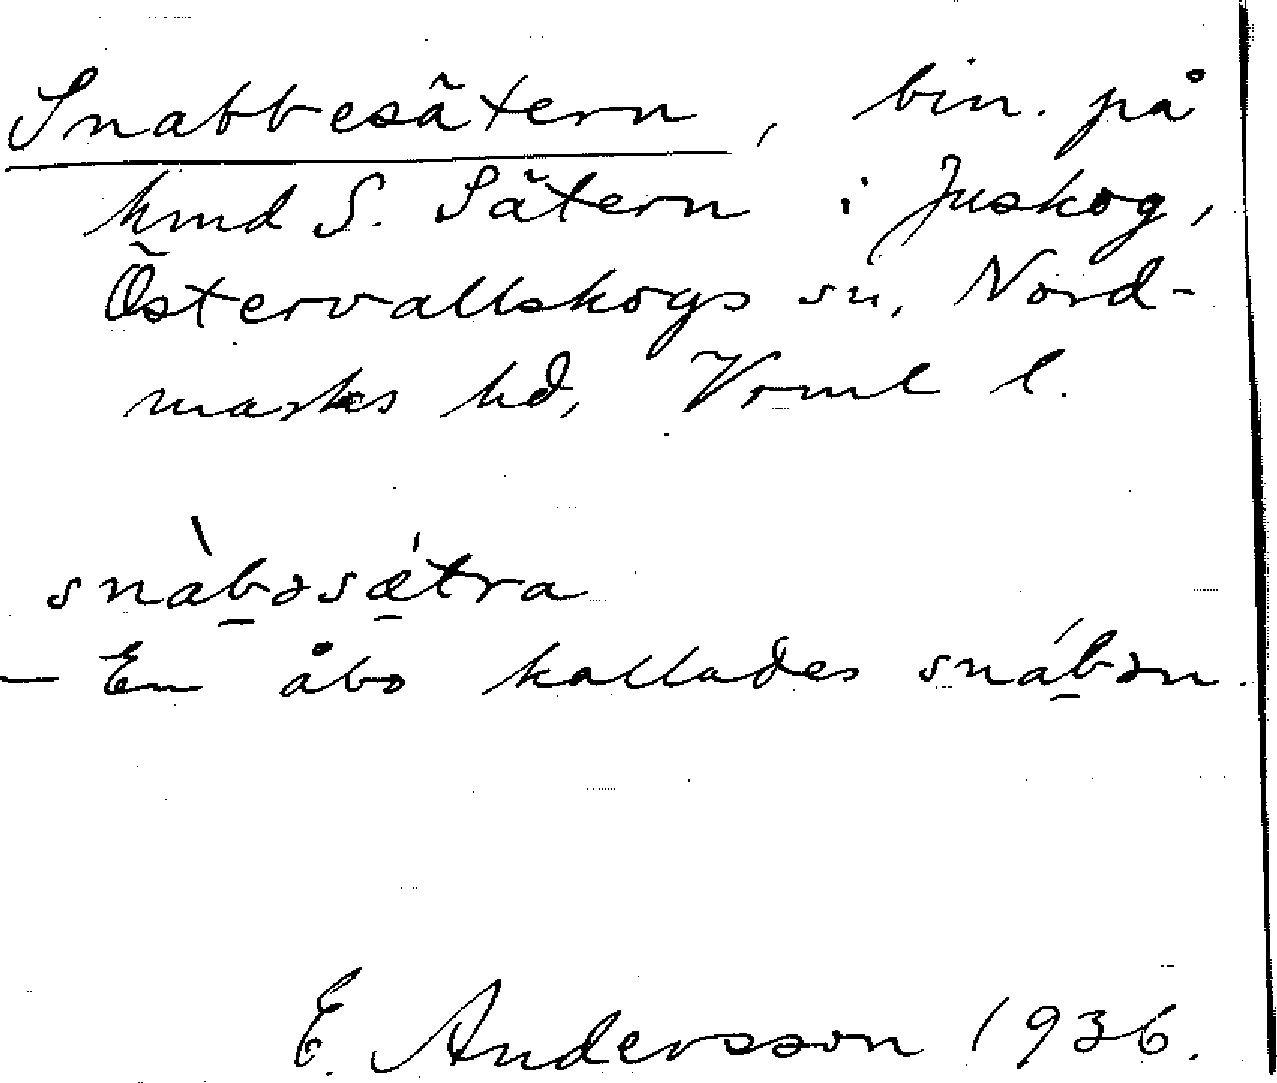 Snabbesätern, bin. på
hmd S. Sätern i Juskog,
Östervallskogs sn, Nord-
marks hd, Vrml l.
snàb̲əsǽ̲tra
— En åbo kallades snáb̲ən.
E. Andersson 1936.